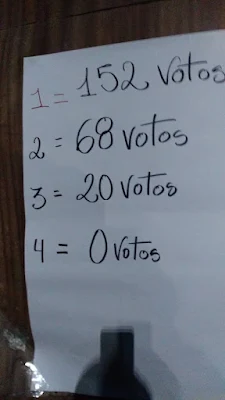 1 = 152 votos
2 = 68 votos
3 = 20 votos
4 = 0 votos